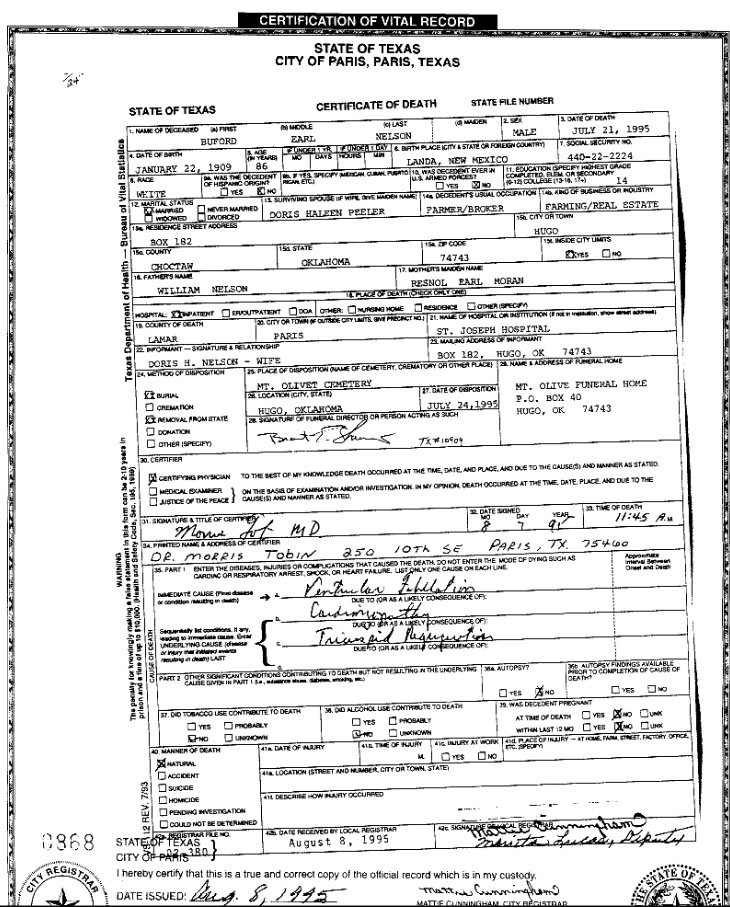 CERTIFICATION OF VITAL RECORD
STATE OF TEXAS
CITY OF PARIS, PARIS, TEXAS
STATE OF TEXAS CERTIFICATE OF DEATH STATE FILE NUMBER
1. NAME OF DECEASED (a) FIRST (b) MIDDLE (c) LAST (d) MAIDEN 2. SEX 3. DATE OF DEATH
BUFORD EARL NELSON MALE JULY 21, 1995
4. DATE OF BIRTH 5. AGE (IN YEARS) IF UNDER 1 YR. IF UNDER 1 DAY 6. BIRTH PLACE (CITY & STATE OR FOREIGN COUNTRY) 7. SOCIAL SECURITY NO.
MO DAYS HOURS MIN
JANUARY 22, 1909 86 LANDA, NEW MEXICO 440-22-2224
8. RACE 9a. WAS THE DECEDENT OF HISPANIC ORIGIN? 9b. IF YES, SPECIFY (MEXICAN, CUBAN, PUERTO RICAN, ETC.) 10. WAS DECEDENT EVER IN U.S. ARMED FORCES? 11. EDUCATION (SPECIFY HIGHEST GRADE COMPLETED, ELEM. OR SECONDARY (0-12) COLLEGE (13-16, 17+)
WHITE YES NO YES NO 14
12. MARITAL STATUS 13. SURVIVING SPOUSE (IF WIFE, GIVE MAIDEN NAME) 14a. DECEDENT'S USUAL OCCUPATION 14b. KIND OF BUSINESS OR INDUSTRY
MARRIED NEVER MARRIED
WIDOWED DIVORCED
DORIS HALEEN PEELER FARMER/BROKER FARMING/REAL ESTATE
15a. RESIDENCE STREET ADDRESS 15b. CITY OR TOWN
BOX 182 HUGO
15c. COUNTY 15d. STATE 15e. ZIP CODE 15f. INSIDE CITY LIMITS
CHOCTAW OKLAHOMA 74743 YES NO
16. FATHER'S NAME 17. MOTHER'S MAIDEN NAME
WILLIAM NELSON RESNOL EARL MORAN
18. PLACE OF DEATH (CHECK ONLY ONE)
HOSPITAL: INPATIENT ER/OUTPATIENT DOA OTHER: NURSING HOME RESIDENCE OTHER (SPECIFY)
19. COUNTY OF DEATH 20. CITY OR TOWN (IF OUTSIDE CITY LIMITS, GIVE PRECINCT NO.) 21. NAME OF HOSPITAL OR INSTITUTION (If not in institution, show street address)
LAMAR PARIS ST. JOSEPH HOSPITAL
22. INFORMANT — SIGNATURE & RELATIONSHIP 23. MAILING ADDRESS OF INFORMANT
DORIS H. NELSON - WIFE BOX 182, HUGO, OK 74743
24. METHOD OF DISPOSITION 25. PLACE OF DISPOSITION (NAME OF CEMETERY, CREMATORY OR OTHER PLACE) 29. NAME & ADDRESS OF FUNERAL HOME
MT. OLIVET CEMETERY MT. OLIVE FUNERAL HOME
BURIAL 26. LOCATION (CITY, STATE) 27. DATE OF DISPOSITION P.O. BOX 40
CREMATION HUGO, OKLAHOMA JULY 24, 1995 HUGO, OK 74743
REMOVAL FROM STATE 28. SIGNATURE OF FUNERAL DIRECTOR OR PERSON ACTING AS SUCH
DONATION
OTHER (SPECIFY)
TX#10909
30. CERTIFIER
CERTIFYING PHYSICIAN TO THE BEST OF MY KNOWLEDGE DEATH OCCURRED AT THE TIME, DATE, AND PLACE, AND DUE TO THE CAUSE(S) AND MANNER AS STATED.
MEDICAL EXAMINER ON THE BASIS OF EXAMINATION AND/OR INVESTIGATION, IN MY OPINION, DEATH OCCURRED AT THE TIME, DATE, PLACE, AND DUE TO THE
JUSTICE OF THE PEACE CAUSE(S) AND MANNER AS STATED.
31. SIGNATURE & TITLE OF CERTIFIER 32. DATE SIGNED 33. TIME OF DEATH
MO DAY YEAR
MD 8 7 95 11:45 A.M
34. PRINTED NAME & ADDRESS OF CERTIFIER
DR. MORRIS TOBIN 250 10TH SE PARIS, TX. 75460
35. PART 1 ENTER THE DISEASES, INJURIES OR COMPLICATIONS THAT CAUSED THE DEATH. DO NOT ENTER THE MODE OF DYING SUCH AS CARDIAC OR RESPIRATORY ARREST, SHOCK, OR HEART FAILURE. LIST ONLY ONE CAUSE ON EACH LINE.
Approximate Interval Between Onset and Death
IMMEDIATE CAUSE (Final disease or condition resulting in death) a. Ventricular Fibrillation
DUE TO (OR AS A LIKELY CONSEQUENCE OF):
Cardiomyopathy
DUE TO (OR AS A LIKELY CONSEQUENCE OF):
Sequentially list conditions, if any, leading to immediate cause. Enter UNDERLYING CAUSE (disease or injury that initiated events resulting in death) LAST
c. Tricuspid Regurgitation
DUE TO (OR AS A LIKELY CONSEQUENCE OF):
d.
PART 2 OTHER SIGNIFICANT CONDITIONS CONTRIBUTING TO DEATH BUT NOT RESULTING IN THE UNDERLYING CAUSE GIVEN IN PART 1 (i.e., substance abuse, diabetes, smoking, etc.)
36a. AUTOPSY? 36b. AUTOPSY FINDINGS AVAILABLE PRIOR TO COMPLETION OF CAUSE OF DEATH?
YES NO YES NO
37. DID TOBACCO USE CONTRIBUTE TO DEATH 38. DID ALCOHOL USE CONTRIBUTE TO DEATH 39. WAS DECEDENT PREGNANT
YES PROBABLY YES PROBABLY AT TIME OF DEATH YES NO UNK
NO UNKNOWN NO UNKNOWN WITHIN LAST 12 MO YES NO UNK
40. MANNER OF DEATH 41a. DATE OF INJURY 41b. TIME OF INJURY 41c. INJURY AT WORK 41d. PLACE OF INJURY — AT HOME, FARM, STREET, FACTORY, OFFICE, ETC. (SPECIFY)
NATURAL M. YES NO
ACCIDENT 41e. LOCATION (STREET AND NUMBER, CITY OR TOWN, STATE)
SUICIDE
HOMICIDE 41f. DESCRIBE HOW INJURY OCCURRED
PENDING INVESTIGATION
COULD NOT BE DETERMINED
REGISTRAR FILE NO. 42b. DATE RECEIVED BY LOCAL REGISTRAR 42c. SIGNATURE OF LOCAL REGISTRAR
02-380 August 8, 1995 Mattie Cunningham
Deputy
Texas Department of Health — Bureau of Vital Statistics
WARNING
The penalty for knowingly making a false statement in this form can be 2-10 years in prison and a fine of up to $10,000. (Health and Safety Code, Sec. 195, 1989)
CAUSE OF DEATH
12 REV. 7/93
0868
STATE OF TEXAS
CITY OF PARIS
I hereby certify that this is a true and correct copy of the official record which is in my custody.
DATE ISSUED: Aug. 8, 1995 Mattie Cunningham
MATTIE CUNNINGHAM, CITY REGISTRAR
CITY REGISTRAR
THE STATE OF TEXAS